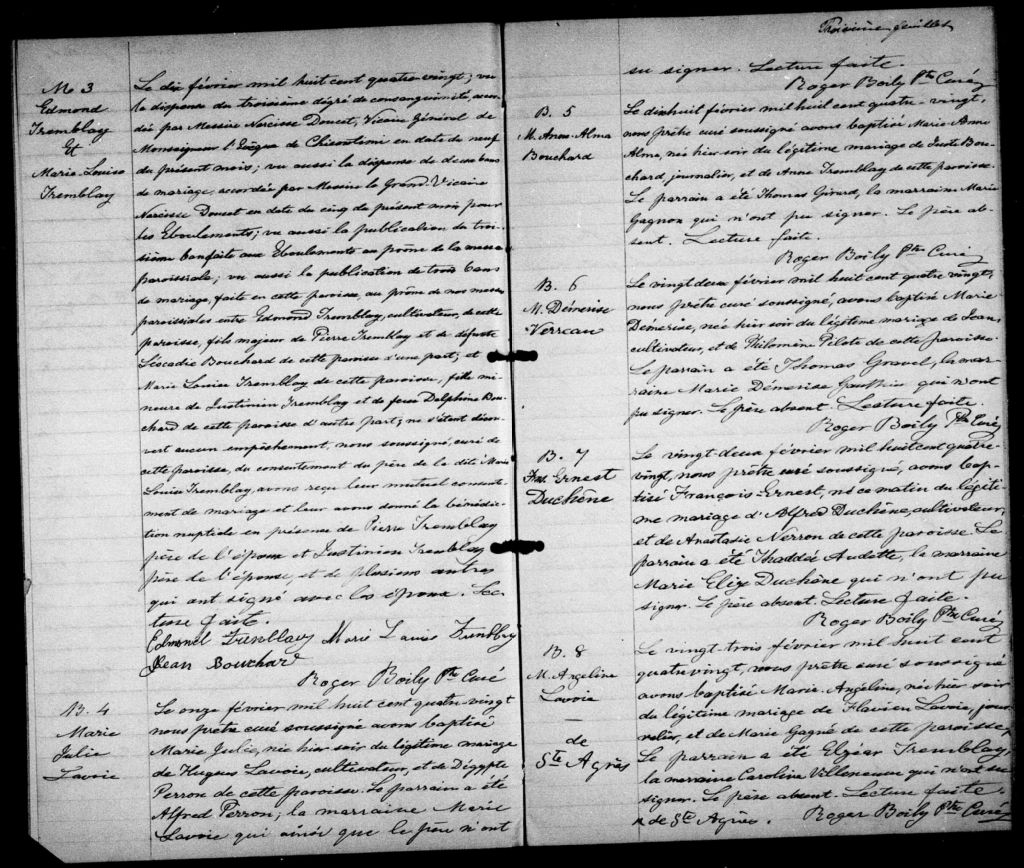 M 3
Edmond
Tremblay
Et
Marie-Louise
Tremblay
Le dix février mil huit cent quatre-vingt; vu
la dispense du troisième dégré de consanguinité, accor-
dée par Messire Narcisse Doucet, Vicaire Général de
Monseigneur l'Evêque de Chicoutimi en date de neuf
du présent mois; vu aussi la dispense de deux bans
de mariage, accordée par Messire le Grand Vicaire
Narcisse Doucet en date du cinq du présent mois pour
les Eboulements; vu aussi la publication du troi-
sième ban faite aux Eboulements au prône de la messe
paroissiale; vu aussi la publication de trois bans
de mariage, faite en cette paroisse, au prône de nos messes
paroissiales entre Edmond Tremblay, cultivateur, de cette
paroisse, fils majeur de Pierre Tremblay et de défunte
Léocadie Bouchard de cette paroisse d'une part; et
Marie Louise Tremblay de cette paroisse, fille mi-
neure de Justinien Tremblay et de feue Delphine Bou-
chard de cette paroisse d'autre part; ne s'étant décou-
vert aucun empêchement, nous soussigné, curé de
cette paroisse, du consentement du père de la dite Marie
Louise Tremblay, avons reçu leur mutuel consente-
ment de mariage et leur avons donné la bénédic-
tion nuptiale en présence de Pierre Tremblay
père de l'époux et Justinien Tremblay
père de l'épouse, et de plusieurs autres
qui ont signé avec les époux. Lec-
ture faite.
Edmond Tremblay Marie Louise Tremblay
Jean Bouchard
Roger Boily Ptre Curé
B. 4
Marie
Julie
Lavoie
Le onze février mil huit cent quatre vingt
nous prêtre curé soussigné avons baptisé
Marie Julie, née hier soir du légitime mariage
de Hugues Lavoie, cultivateur, et de Dégypte
Perron de cette paroisse. Le parrain a été
Alfred Perron; la marraine Marie
Lavoie qui ainsi que le père n'ont
Troisième feuillet
su signer. Lecture faite.
Roger Boily Ptre Curé
B. 5
M. Anne-Alma
Bouchard
Le dixhuit février mil huit cent quatre-vingt,
nous prêtre curé soussigné avons baptisé Marie-Anne
Alma, née hier soir du légitime mariage de Bou-
chard, journalier, et de Anne Tremblay de cette paroisse.
Le parrain a été Thomas Girard, la marraine Marie
Gagnon qui n'ont pu signer. Le père ab-
sent. Lecture faite.
Roger Boily Ptre Curé
B. 6
M. Démerise
Verreau
Le vingt deux février mil huit cent quatre vingt,
nous prêtre curé soussigné, avons baptisé Marie
Démerise, née hier soir du légitime mariage de Jean,
cultivateur, et de Philomène Pilote de cette paroisse.
Le parrain a été Thomas Gravel, la mar-
raine Marie Démerise Gauthier qui n'ont
pu signer. Le père absent. Lecture faite.
Roger Boily Ptre Curé
B. 7
Frs. Ernest
Duchène
Le vingt-deux février mil huit cent quatre-
vingt, nous prêtre curé soussigné, avons bap-
tisé François-Ernest, né ce matin du légiti-
me mariage d'Alfred Duchène, cultivateur,
et de Anastasie Nerron de cette paroisse. Le
parrain a été Thaddée Audette, la marraine
Marie Elize Duchène qui n'ont pu
signer. Le père absent. Lecture faite.
Roger Boily Ptre Curé
B. 8
M. Angéline
Lavoie
—
de
Ste Agnès
Le vingt-trois février mil huit cent
quatre vingt, nous prêtre curé soussigné
avons baptisé Marie-Angéline, née hier soir
du légitime mariage de Flavien Lavoie, jour-
nalier, et de Marie Gagné de cette paroisse.
Le parrain a été Elzéar Tremblay,
la marraine Caroline Villeneuve qui n'ont su
signer. Le père absent. Lecture faite.
x de Ste Agnès. Roger Boily Ptre Curé